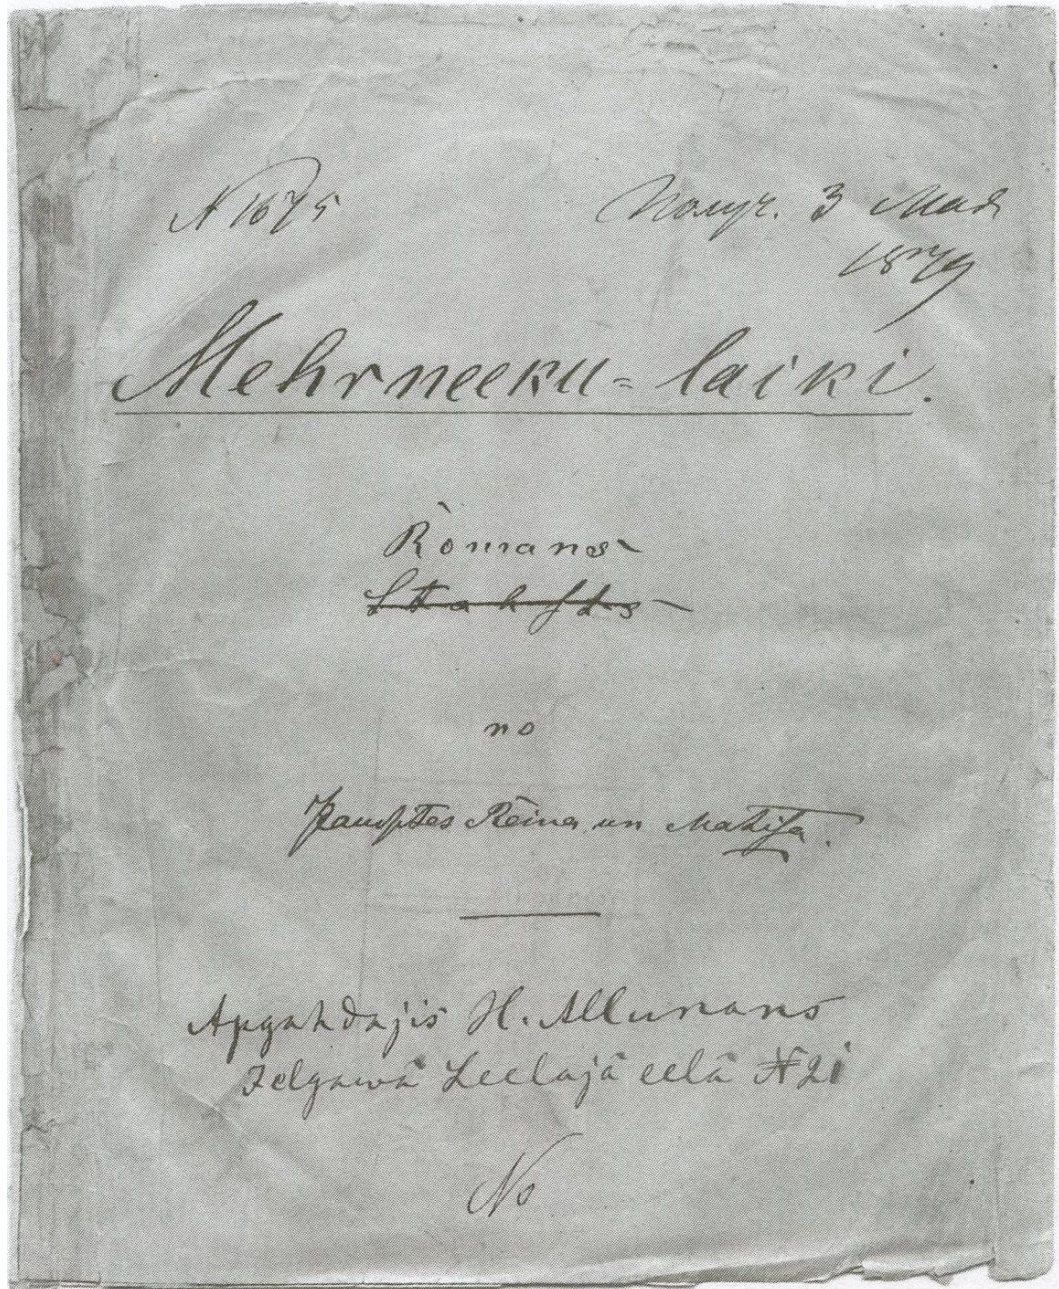 № 1675
Получ. 3 Мая
1879
Mehrneeku-laiki.
Romans
Stahsts
no
Kaupstes Reina un Matisa.
Apgahdajis H. Allunans
Jelgawâ Leelajâ eelâ № 21
No